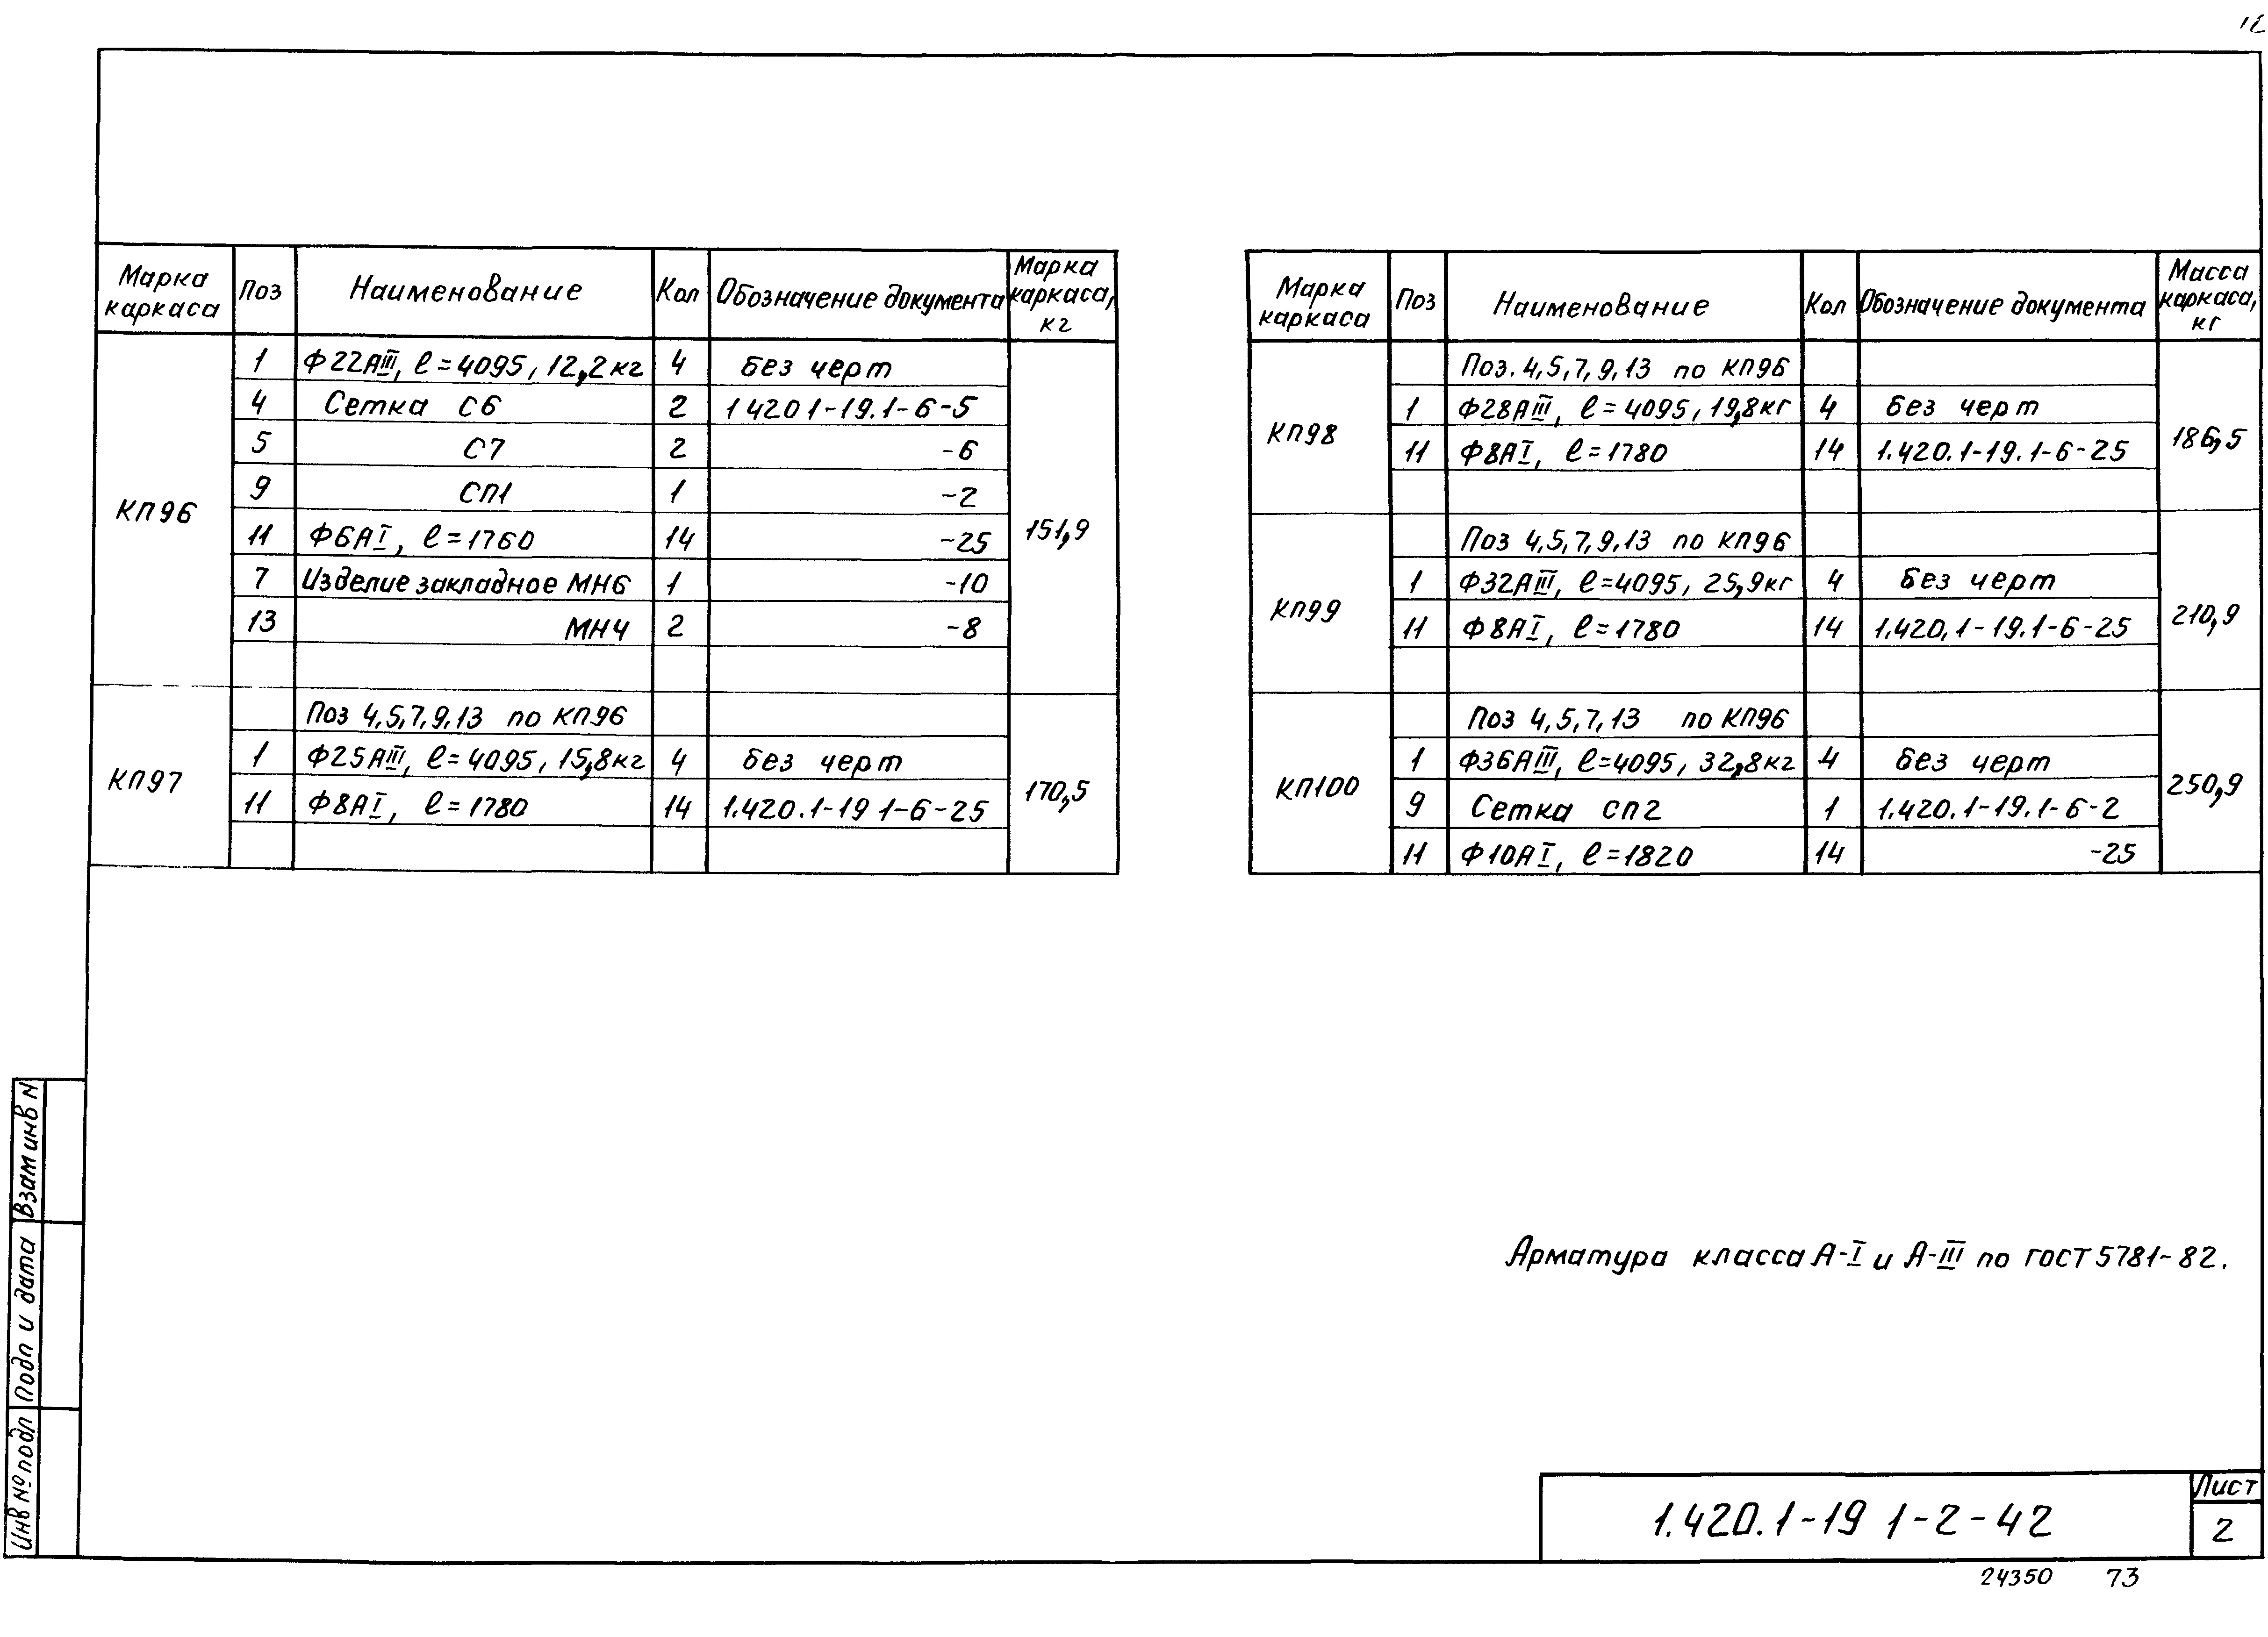 Марка каркаса Поз Наименование Кол Обозначение документа Марка каркаса, кг
КП96 151,9
1 Ф22АIII, ℓ=4095, 12,2кг 4 без черт
4 Сетка С6 2 1 420 1-19.1-6-5
5 С7 2 -6
9 СП1 1 -2
11 Ф6АI, ℓ=1760 14 -25
7 Изделие закладное МН6 1 -10
13 МН4 2 -8
КП97 170,5
Поз 4,5,7,9,13 по КП96
1 Ф25АIII, ℓ=4095, 15,8кг 4 без черт
11 Ф8АI, ℓ=1780 14 1.420.1-19 1-6-25
Марка каркаса Поз Наименование Кол Обозначение документа Масса каркаса, кг
КП98 186,5
Поз. 4,5,7,9,13 по КП96
1 Ф28АIII, ℓ=4095, 19,8кг 4 без черт
11 Ф8АI, ℓ=1780 14 1.420.1-19.1-6-25
КП99 210,9
Поз 4,5,7,9,13 по КП96
1 Ф32АIII, ℓ=4095, 25,9кг 4 без черт
11 Ф8АI, ℓ=1780 14 1.420.1-19.1-6-25
КП100 250,9
Поз 4,5,7,13 по КП96
1 Ф36АIII, ℓ=4095, 32,8кг 4 без черт
9 Сетка СП2 1 1.420.1-19.1-6-2
11 Ф10АI, ℓ=1820 14 -25
Арматура класса А-I и А-III по ГОСТ 5781-82.
Взам инв N
Подп и дата
Инв № подл
1.420.1-19 1-2-42
Лист
2
24350 73